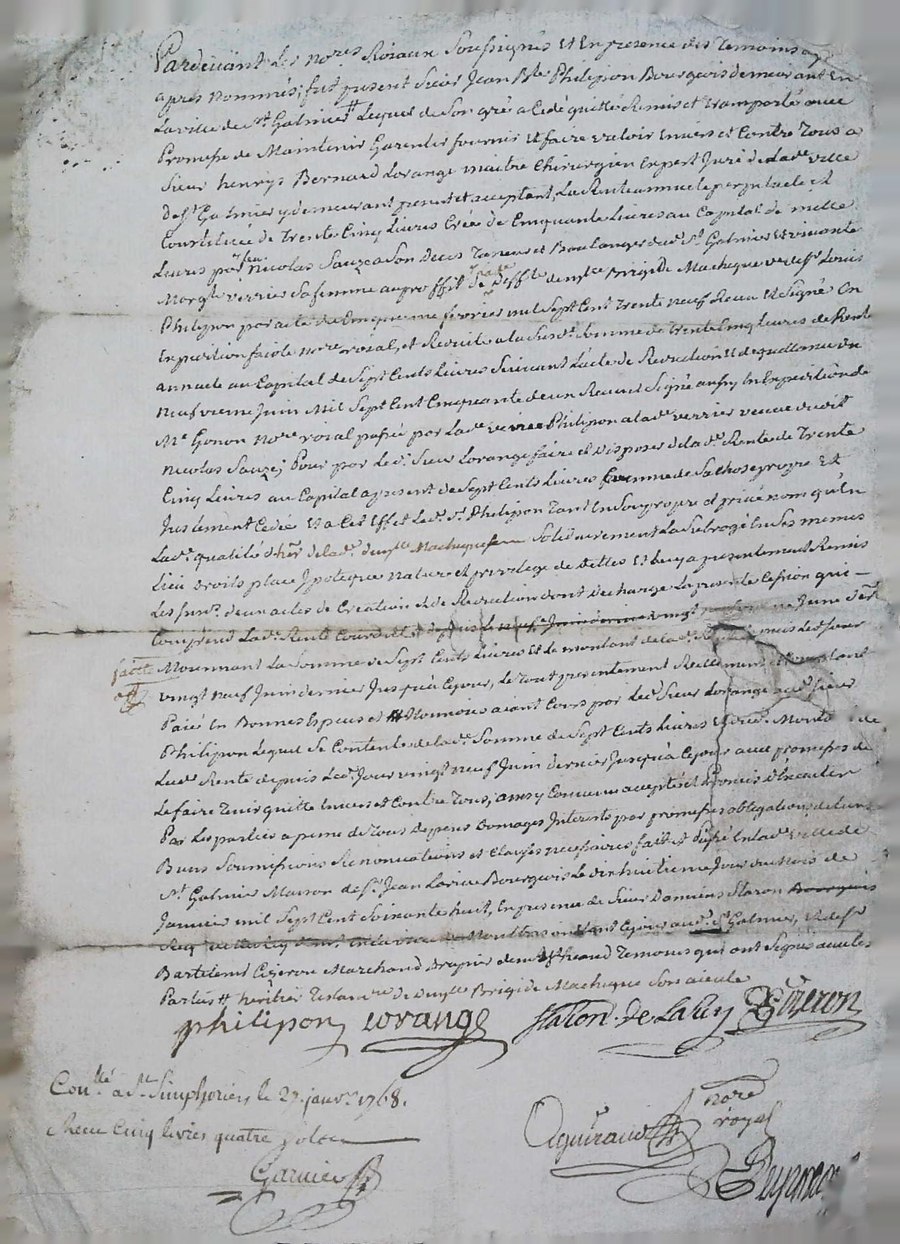 Pardevant Les no.res Roïaux Soussignés et En presence des Temoins cy
apres nommés; fut present Sieur Jean B.te Philipon Bourgeois demeurant En
La ville de S.t Galmier # Lequel de Son gré a Cedé quitté Remis et transporté avec
Promesse de Maintenir Garentir fournir et faire valoir Envers et Contre Tous a
Sieur henrys Bernard Lorange maitre Chirurgien Expert Juré de Lad.e ville
de S.t Galmier y demeurant present et acceptant, La Rente annuelle perpetuelle et
Constituée de Trente Cinq Livres Créée de Cinquante Livres au Capital de mille
Livres par feu Nicolas Sauze a Son deces Taneur et Boulanger dud. S.t Galmier et
Marg.te verrier Sa femme au proffit de deff.te dem.lle Brigide Macheque veuve S.r Louis
Philipon par acte du Cinquieme fevrier mil Sept Cent Trente neuf Receu et Signé En
Expedition no.re roïal, et Reduite a la Susd.e Somme de Trente Cinq Livres de Rente
annuele au Capital de Sept Cents Livres Suivant L'acte de Reduction et de quittance du
Neufvieme Juin Mil Sept Cent Cinquante deux Receu et Signé aussy En Expedition de
M.e Gonon No.re roïal passée par Lad.e veuve Philipon a lad.e verrier veuve dudit
Nicolas Sauze; Pour par Led. Sieur Lorange faire et Disposer de lad.e Rente de Trente
Cinq Livres au Capital a present de Sept Cents Livres Comme de Sa chose propre Et
Justement Cedée Et a Cet Effet Led. S.r Philipon Tant En Son propre et privé nom qu'En
Lad.e qualité d'her. de lad.e dem.lle Macheque Solidairement La Subrogé En Ses memes
Lieu droits place Ypoteque nature et privilege de dettes Et Luy a presentement Remis
Les Susd. deux actes de Creation et de Reduction dont decharge La presente Cession qui
Comprend Lad.e Rente Courue et depuis le vingt neuf Juin der.
faitte Moïennant La Somme de Sept Cents Livres Et Le montant de lad.e Rente depuis Led. Jour
vingt neuf Juin dernier Jusqu'a Ce jour, Le Tout presentement Reellement et Comptant
Païé En Bonnes Especes et Monnoïes aïant Cours par Led. Sieur Lorange aud. Sieur
Philipon Lequel Se Contente de lad.e Somme de Sept Cents Livres et dud. Montant de
Lad.e Rente depuis Led. Jour vingt neuf Juin dernier Jusqu'a Ce jour avec promesse de
Le faire Tenir quitte Envers et Contre Tous, ainsy Convenu accepté et promis d'Executer
Par Les parties a peine de Tous depens domages Interets par promesses obligations de Leurs
Biens Soumissions Renonciations et Clauses necessaires fait et passé En lad.e ville de
S.t Galmier Maison de S.r Jean Bourgeois Le dix huitieme Jour du Mois de
Janvier mil Sept Cent Soixante huit, En presence de Sieur Damiens Staron Bourgeois
Montbrison Etant Ce jour aud. S.t Galmier, et de S.r
Bartelemi Cizeron Marchand Drapier Temoins qui ont Signés avec les
Parties # heritier Testam.re de dem.lle Brigide Macheque Son aïeule
philipon Lorange Staron de Larey Cizeron
Con.llé a S.t Simphorien le 27 janv.r 1768.
Receu Cinq livres quatre Sols
Garnier
Aguiraud no.re royal